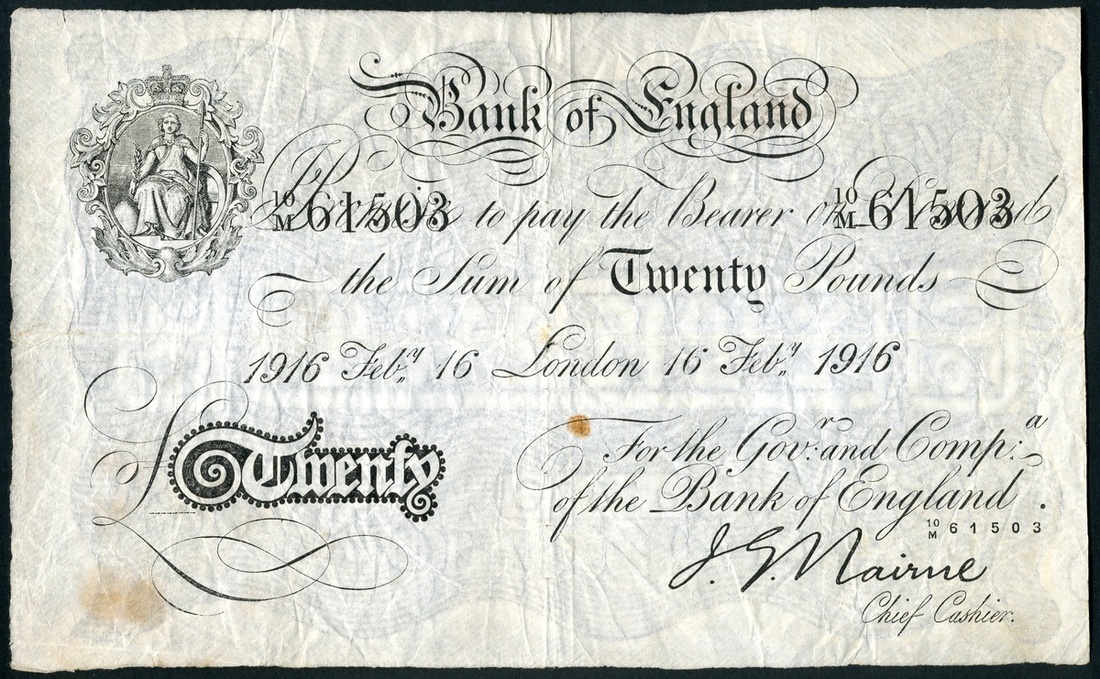 Bank of England
10/M 61503 to pay the Bearer on 10/M 61503
the Sum of Twenty Pounds
1916 Feby 16 London 16 Feby 1916
For the Govr: and Compa:
£Twenty
of the Bank of England.
10/M 61503
J. G. Nairne
Chief Cashier.